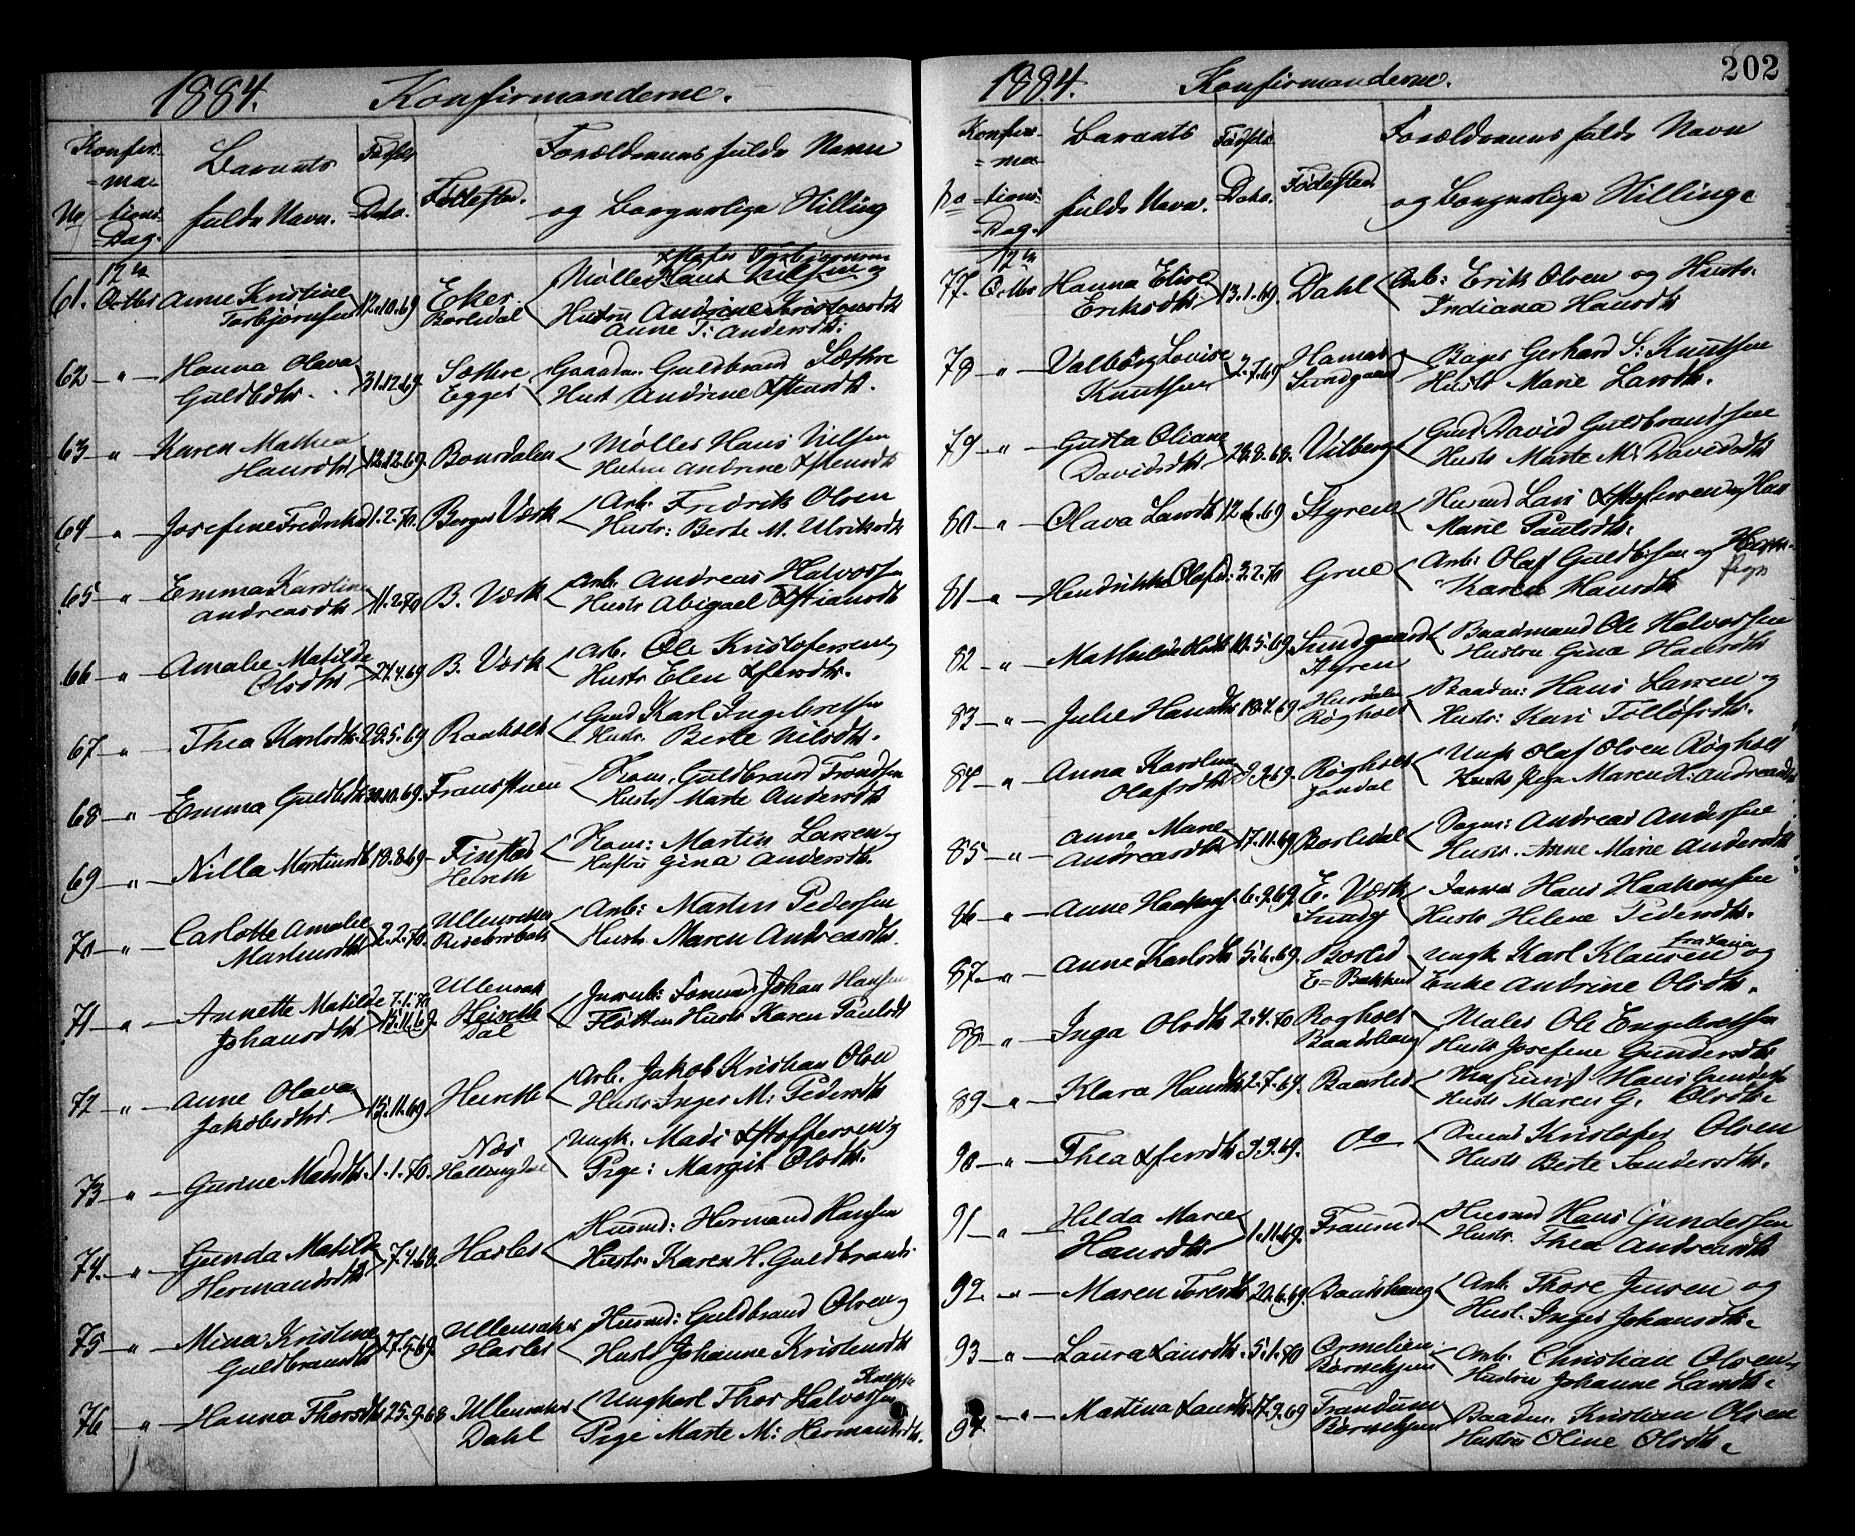 1884. Konfirmanderne.
Konfir-
=ma-
No tions-
=Dag.
Barnets
fulde Navn.
Fødsels
Dato.
Fødested.
Forældrenes fulde Navn
og borgerlige Stilling
61. 12te Octbr Anne Kristine Torbjørnsen 12.10.69 Eker Borlidal
Hustru Andrine Kristensdtr
Anne T: Andersdtr:
62 — " — Hanna Olava Guldbdtr. 31.12.69. Sæthre Egger Gaardm. Guldbrand Sæthre
Hust Andrine Xstensdtr.
63 " Karen Mathea Hansdtr 12.12.69. Bonsdalen Møller Hans Nilsen
Hustru Andrine Xstensdtr
64 — " — Josefine Fredriksd 1.2.70. Berger Værk Arb. Fredrik Olsen
Hustr: Berte M. Ulriksdtr
65 — " Emma Karoline Andreasdtr 11.2.70 B. Værk Arb. Andreas Halvorsen
Hustr Abigael Xstiansdtr
66 — " — Amalie Matilde Olsdtr 27.4.69 B. Værk Arb. Ole Kristofersen og
Hustr Elen Xfersdtr.
67 " Thea Karlsdtr. 29.5.69 Raaholt Gmd Karl Ingebretsen
Hustr. Berte Nilsdtr.
68 — " — Emma Guldbdtr 30.10.69. Transtuen Guldbrand Trondsen
Hustr Marte Andersdtr
69 — " — Nilla Martinsdtr 18.8.69 Finstad Heireth Martin Larsen og
Hustru Gina Andersdtr.
70 — " — Carlotte Amalie Martinsdtr 2.2.70. Ullensaker Arb: Martin Pedersen
Hustr. Maren Andreasdtr.
71 — " — Annette Matilde Johansdtr 7.1.70 15.11.69. Ullensak Heireth Dal Johan Hansen
Fløtten Hustr Karen Paulsdt
72 — " — Anne Olava Jakobsdtr 15.11.69 Heireth Arb. Jakob Kristian Olsen
Hustr. Inger M: Pedersdtr
73 — " — Gurine Madsdtr. 1.1.70. Næs Ungk. Mads Xstoffersen og
Pige: Margit Olsdtr.
74. — " — Gunda Matilde Hermandsdtr 7.4.68. Hasler Husmd: Hermand Hansen
Hustr. Karen H. Guldbrands
75 — " — Mina Kristine Guldbrandsdtr 27.5.69. Ullensaker Hasler Husmd: Guldbrand Olsen og
Hustr Johanne Kristensdtr
76 — " — Hanna Thorsdtr 25.9.68 Ullensaker Dahl Ungkarl Thor Halvorsen
Pige Marte M: Hermansdtr.
202
1884. Konfirmanderne.
Konfir-
=ma-
No =tions-
=Dag.
Barnets
fulde Navn.
Fødsels
Dato.
Fødested.
Forældrenes fulde Navn
og borgerlige Stilling.
77. 12te Octbr Hanna Elise Eriksdtr 13.1.69. Dahl Arb: Erik Olsen og Hustr.
Indiana Hansdtr
78 — " — Valborg Lovise Knutsen 2.7.69 Sundgaard Bager Gerhard S: Knutsen
Hustr Marie Larsdtr.
79 — " — Gusta Oliane Davidsdtr 28.8.68. Vilberg Gmd David Guldbrandsen
Hustr Marte M: Davidsdtr
80 — " — Olava Larsdtr 12.6.69 Styren Husmd Lars Xstofersen og Hus
Marie Paulsdtr.
81 — " — Hendrikke Olafsd: 3.2.70 Grue Arb: Olaf Guldbrsen og
Karen Hansdtr
82 — " — Mathilde 10.5.69 Sundgaard Styren Baadmand Ole Halvorsen
Hustru Gina Hansdtr
83 — " — Julie Hansdtr Hurdalen Røgholt Baadm: Hans Larsen og
Hustr: Kari Tollofsdtr.
84 " Anna Karoline Olafsdtr 9.9.69. Røgholt Jondal Ungk Olaf Olsen Røgholt
Pige Maren H: Andreasdtr
85 — " — Anne Marie Andreasdtr 17.11.69 Borlidal Andreas Andersen
Hustr. Anne Marie Andersdtr
86 — " — Anne Haakonsd 6.9.69. E. Værk Sundby Hans Haakonsen
Hustr Helene Pedersdtr.
87 — " — Anne Karlsdtr 5.6.69. E=Bakken Ungk Karl Klausen og
Enke Andrine Olsdtr.
88 — " — Inga Olsdtr 2.4.70 Rogholt Baadshaug Maler Ole Engebretsen
Hustr Josefine Gundersdtr
89 — " — Klara Hansdtr 2.7.69. Baarlid Hans Gunders
Hustr Maren G. Olsdtr.
90 — " — Thea Xfersdtr 9.9.69. Do Kristofer Olsen
Hustr Berte Sandersdtr.
91 — " — Hilda Marie Hansdtr 1.11.69. Traund Husmd Hans Gundersen
Hustr. Thea Andreasdtr
92. — " — Maren Toresdtr 20.6.69. Baadshaug Arb. Thore Jensen og
Hust. Inger Johansdtr.
93 — " — Laura Larsdtr. 5.1.70 Ormelien Børnehjem Arb. Christian Olsen og
Hustru Johanne Larsdtr.
94 — " — Martina Larsdtr. 17.9.69 Trandum Børnehjem Baadm. Kristian Olsen
Hustru Oline Olsdtr.